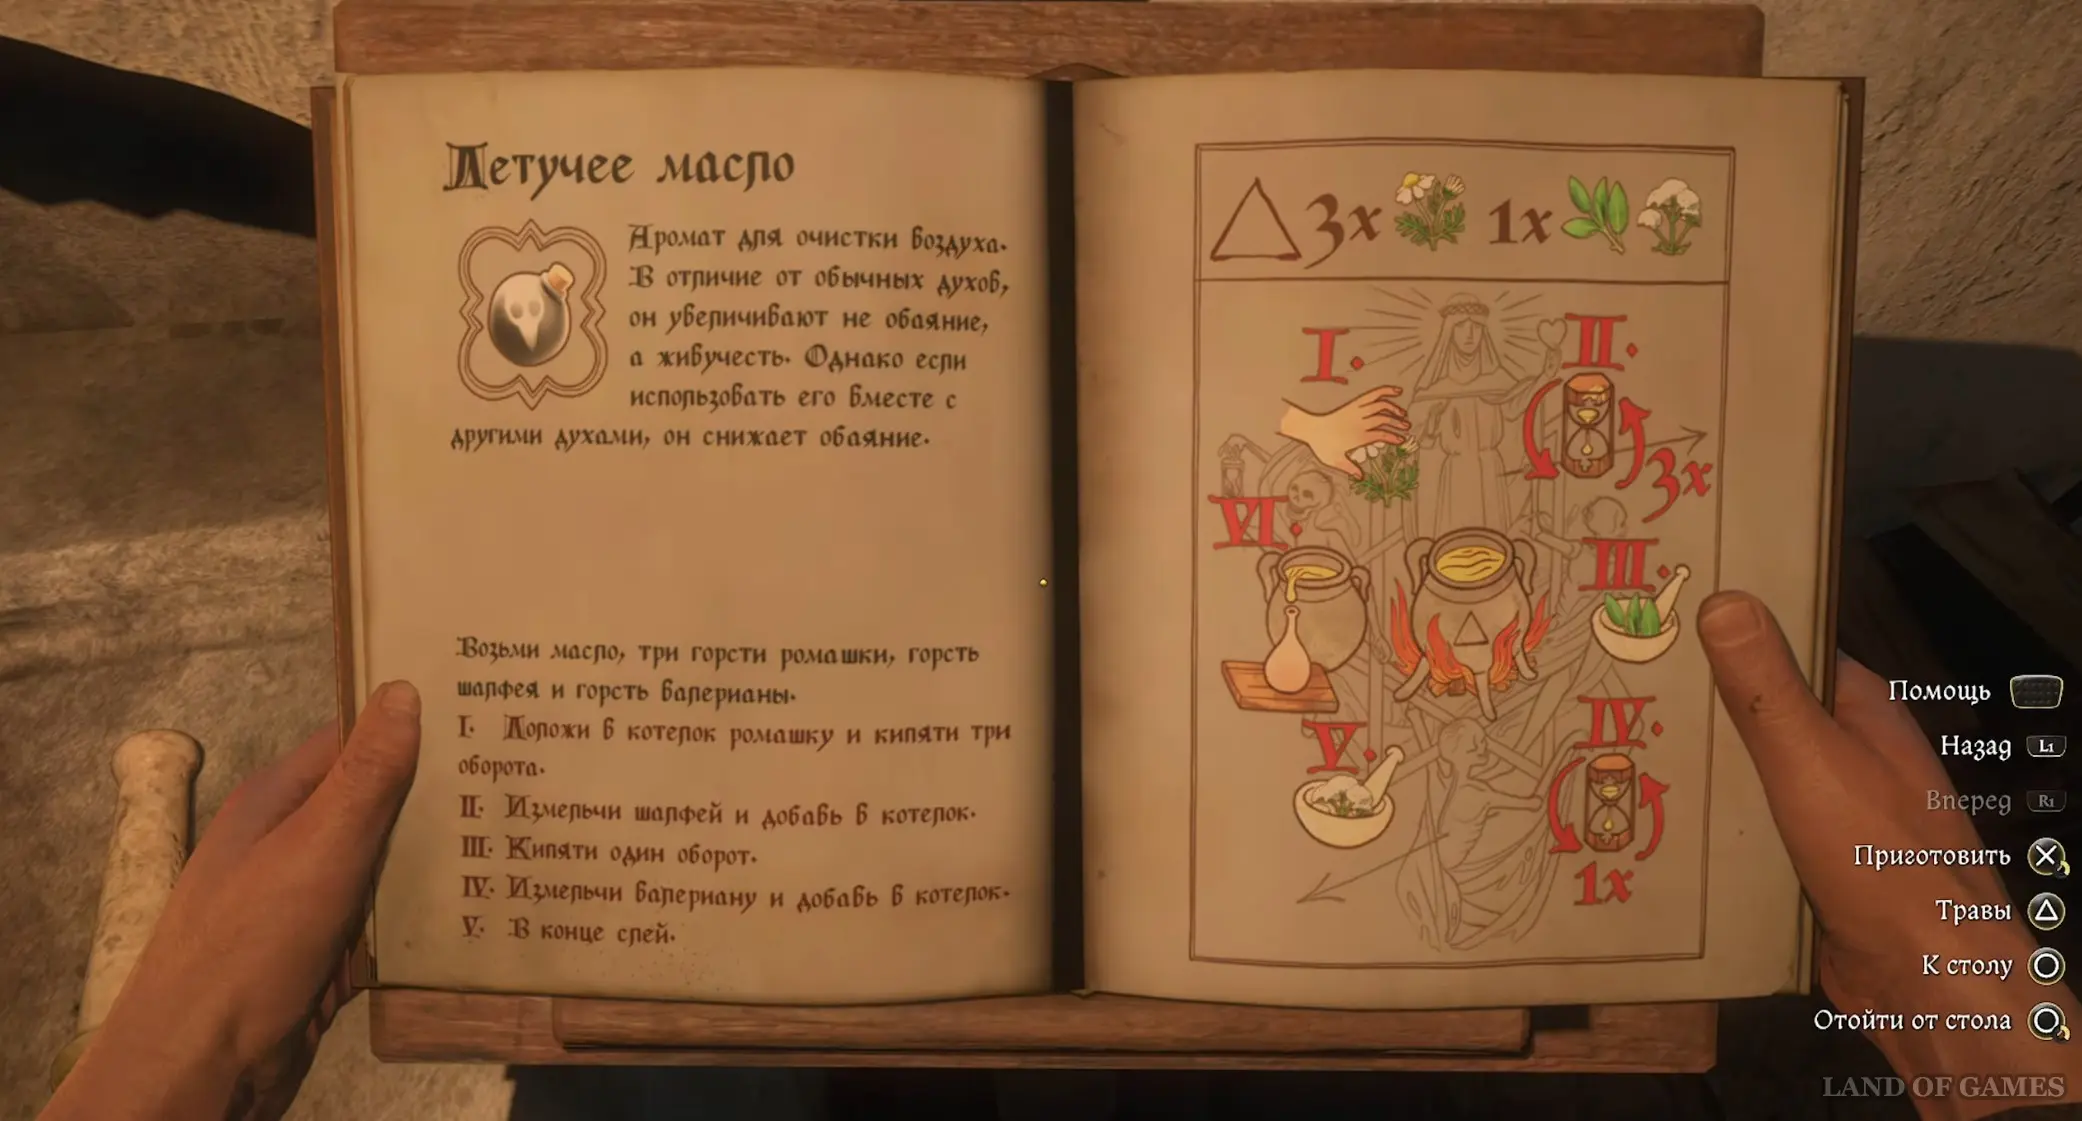 Летучее масло
Аромат для очистки воздуха.
В отличие от обычных духов,
он увеличивают не обаяние,
а живучесть. Однако если
использовать его вместе с
другими духами, он снижает обаяние.
Возьми масло, три горсти ромашки, горсть
шалфея и горсть валерианы.
I. Положи в котелок ромашку и кипяти три
оборота.
II. Измельчи шалфей и добавь в котелок.
III. Кипяти один оборот.
IV. Измельчи валериану и добавь в котелок.
V. В конце слей.
3x 1x
I. II.
3x
VI. III.
V. IV.
1x
Помощь
Назад L1
Вперед R1
Приготовить
Травы
К столу
Отойти от стола
LAND OF GAMES